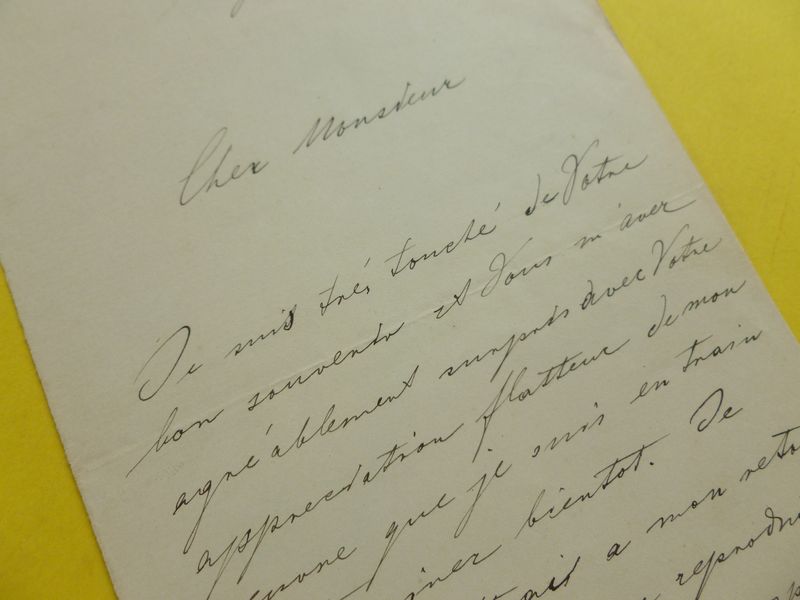 Cher Monsieur
Je suis trés touché de Votre
bon souvenir et Vous m'aver
agréablement surpris avec Votre
appreciation flatteur de mon
que je suis en train
bientot. Je
a mon